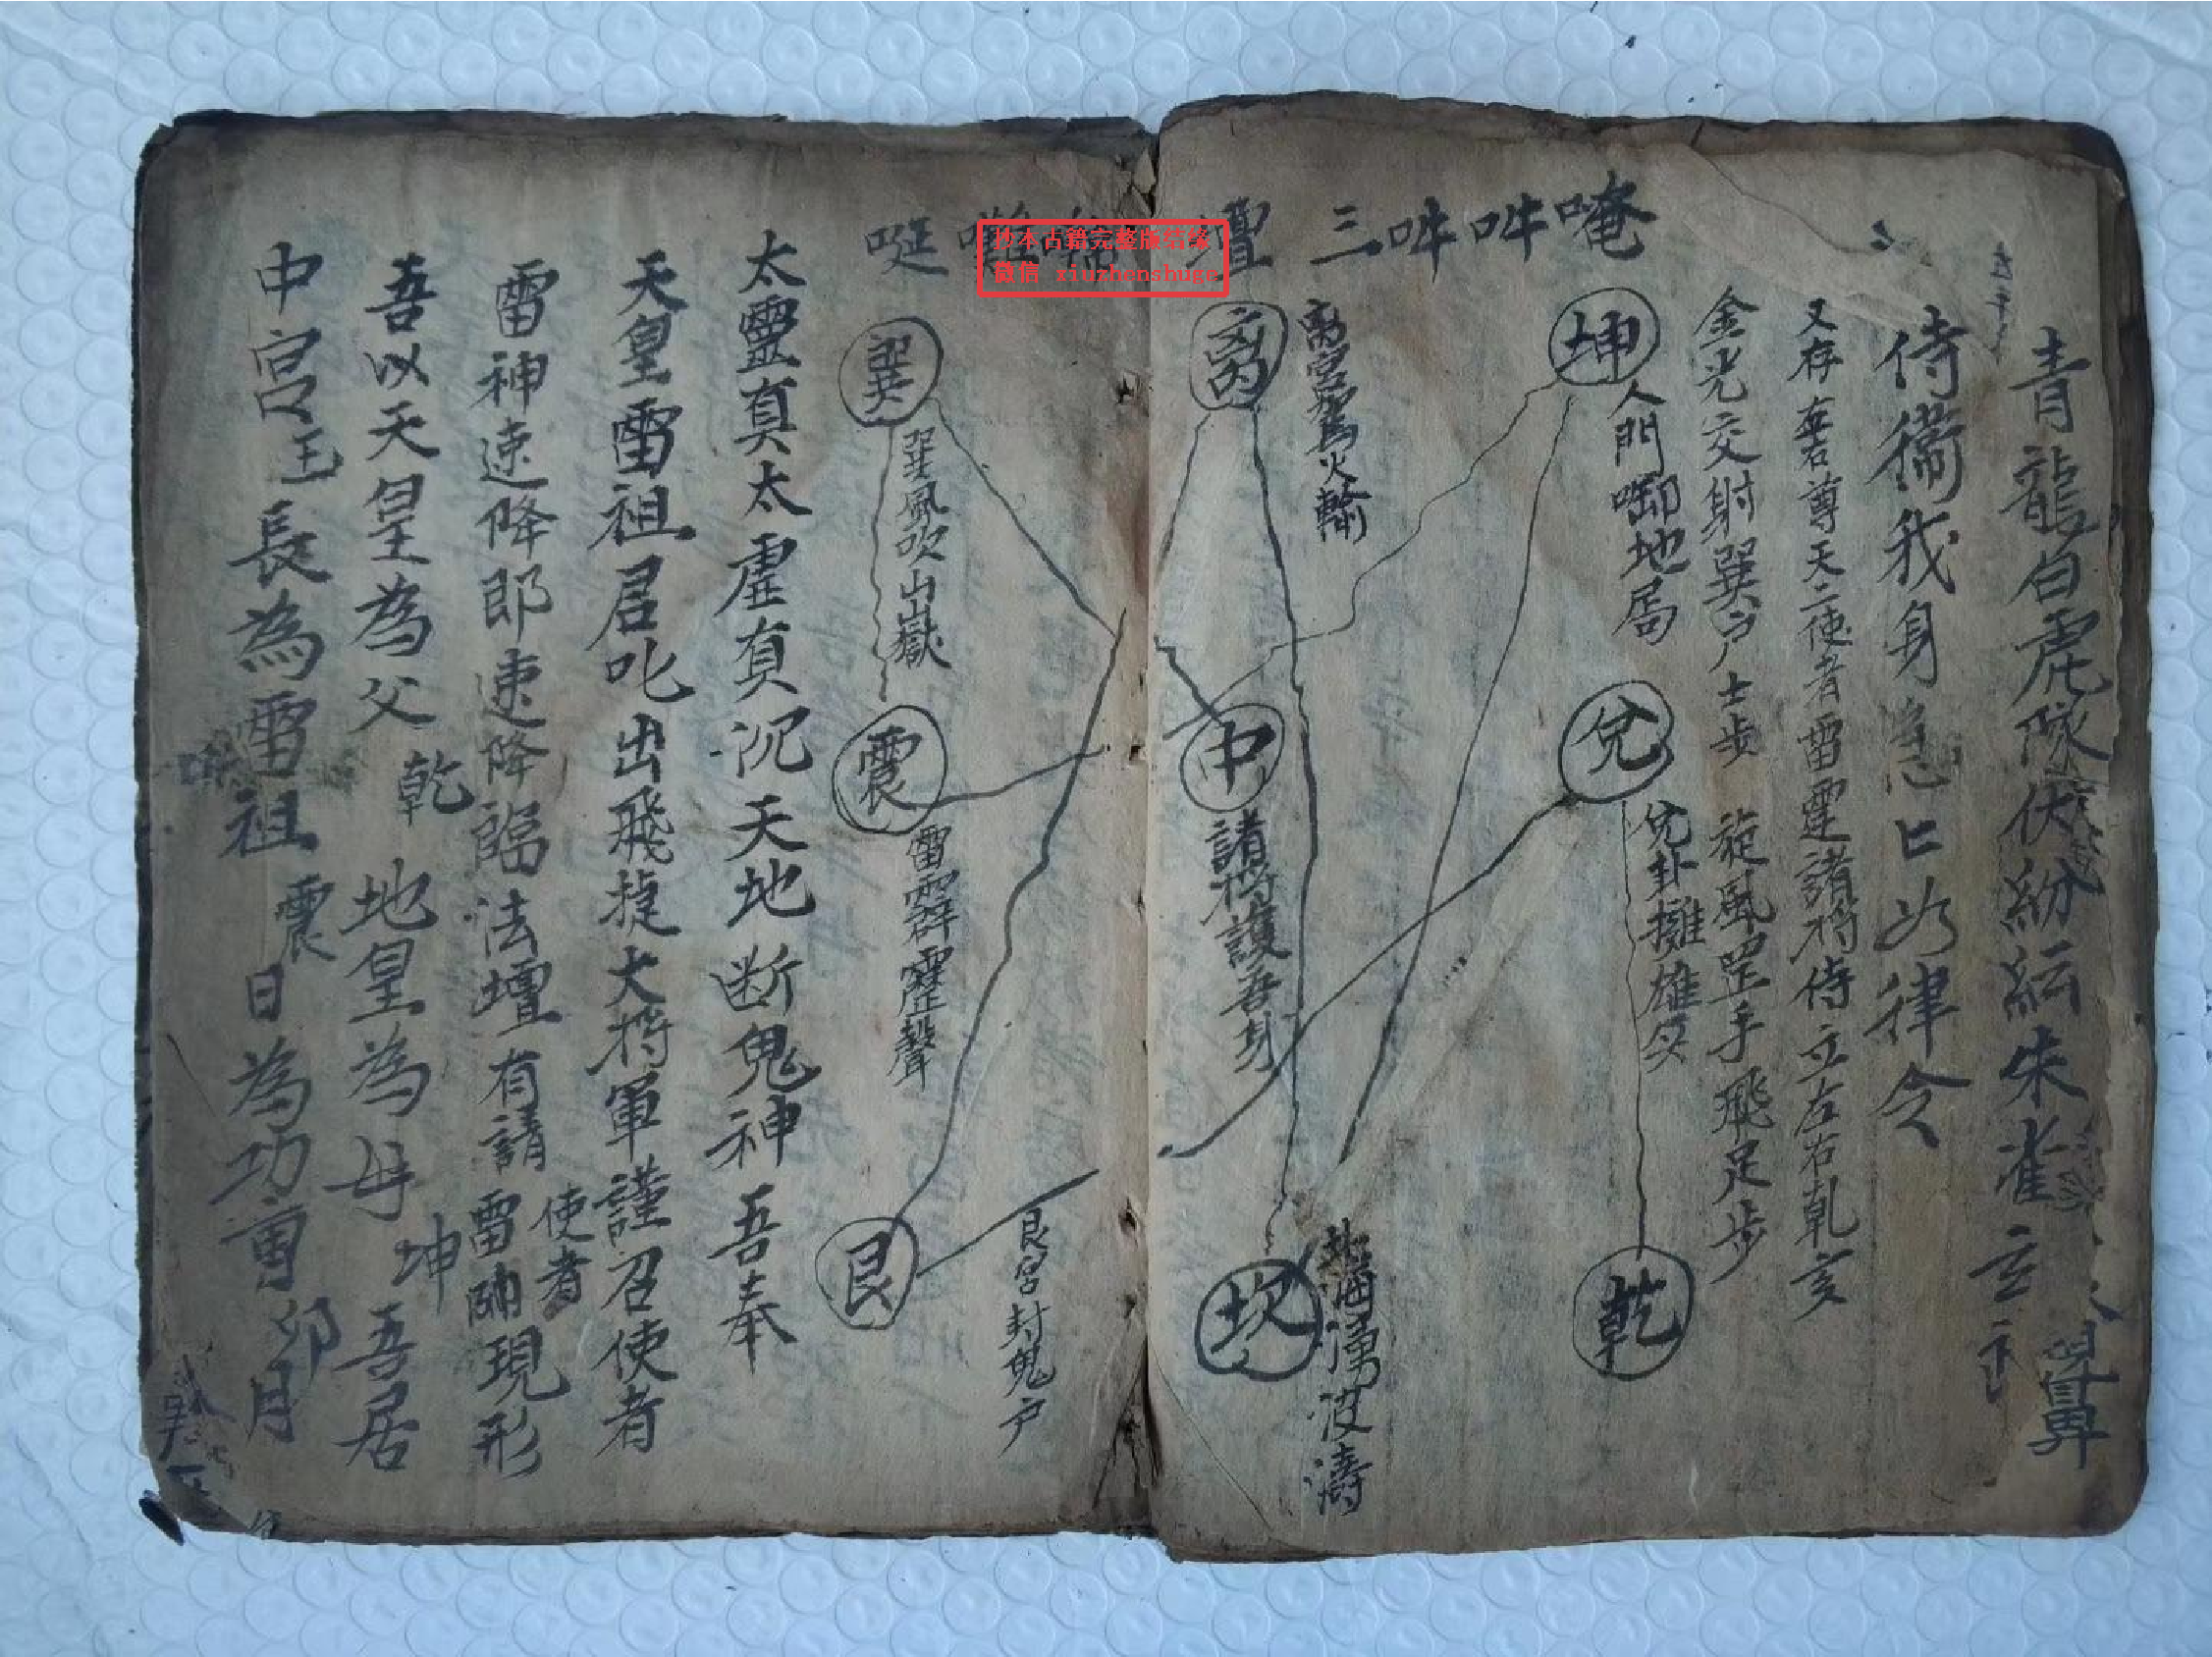 青龍白虎隊伏紛紜朱雀玄
侍衛我身急匕如律令
又存 尊天二使者雷霆諸將侍立左右乾亥
金光交射巽户士步 旋風罡手飛足步
唵吽吽三
坤
人門 地局
兌
兌卦擁雄
乾
離
火輪
中
諸將護吾身
坎
湧波濤
巽
巽風吹山嶽
震
雷霹靂聲
艮
艮宮封鬼户
太靈真太虛真 天地断鬼神 吾奉
天皇雷祖君叱出飛捷大将軍謹召使者
雷神速降即速降臨法壇有請雷 現形
使者
吾以天皇為父 乾 地皇為母 坤 吾居
中宮王長為雷祖 震 日為功曹 卯 月
抄本古籍完整版结缘
微信 xiuzhenshuge